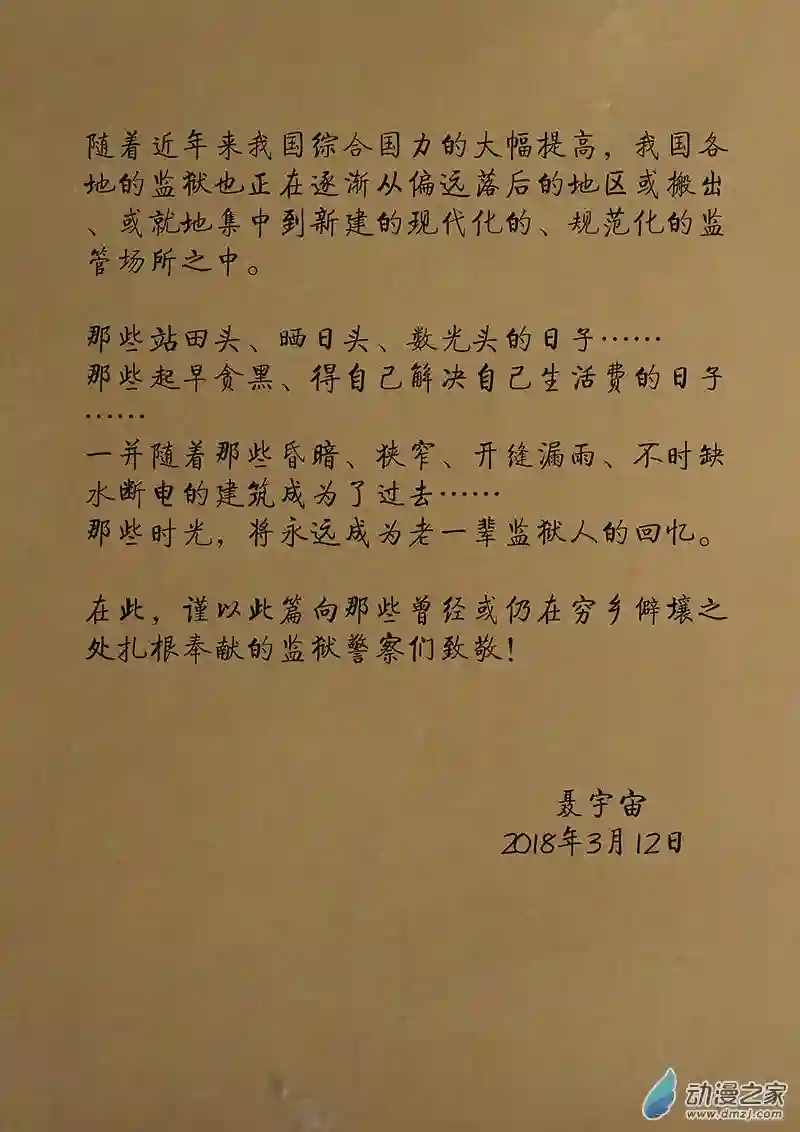 随着近年来我国综合国力的大幅提高，我国各
地的监狱也正在逐渐从偏远落后的地区或搬出
、或就地集中到新建的现代化的、规范化的监
管场所之中。
那些站田头、晒日头、数光头的日子……
那些起早贪黑、得自己解决自己生活费的日子
……
一并随着那些昏暗、狭窄、开缝漏雨、不时缺
水断电的建筑成为了过去……
那些时光，将永远成为老一辈监狱人的回忆。
在此，谨以此篇向那些曾经或仍在穷乡僻壤之
处扎根奉献的监狱警察们致敬！
聂宇宙
2018年3月12日
动漫之家
www.dmzj.com